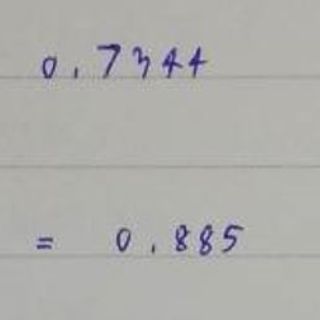 0.7344
= 0.885